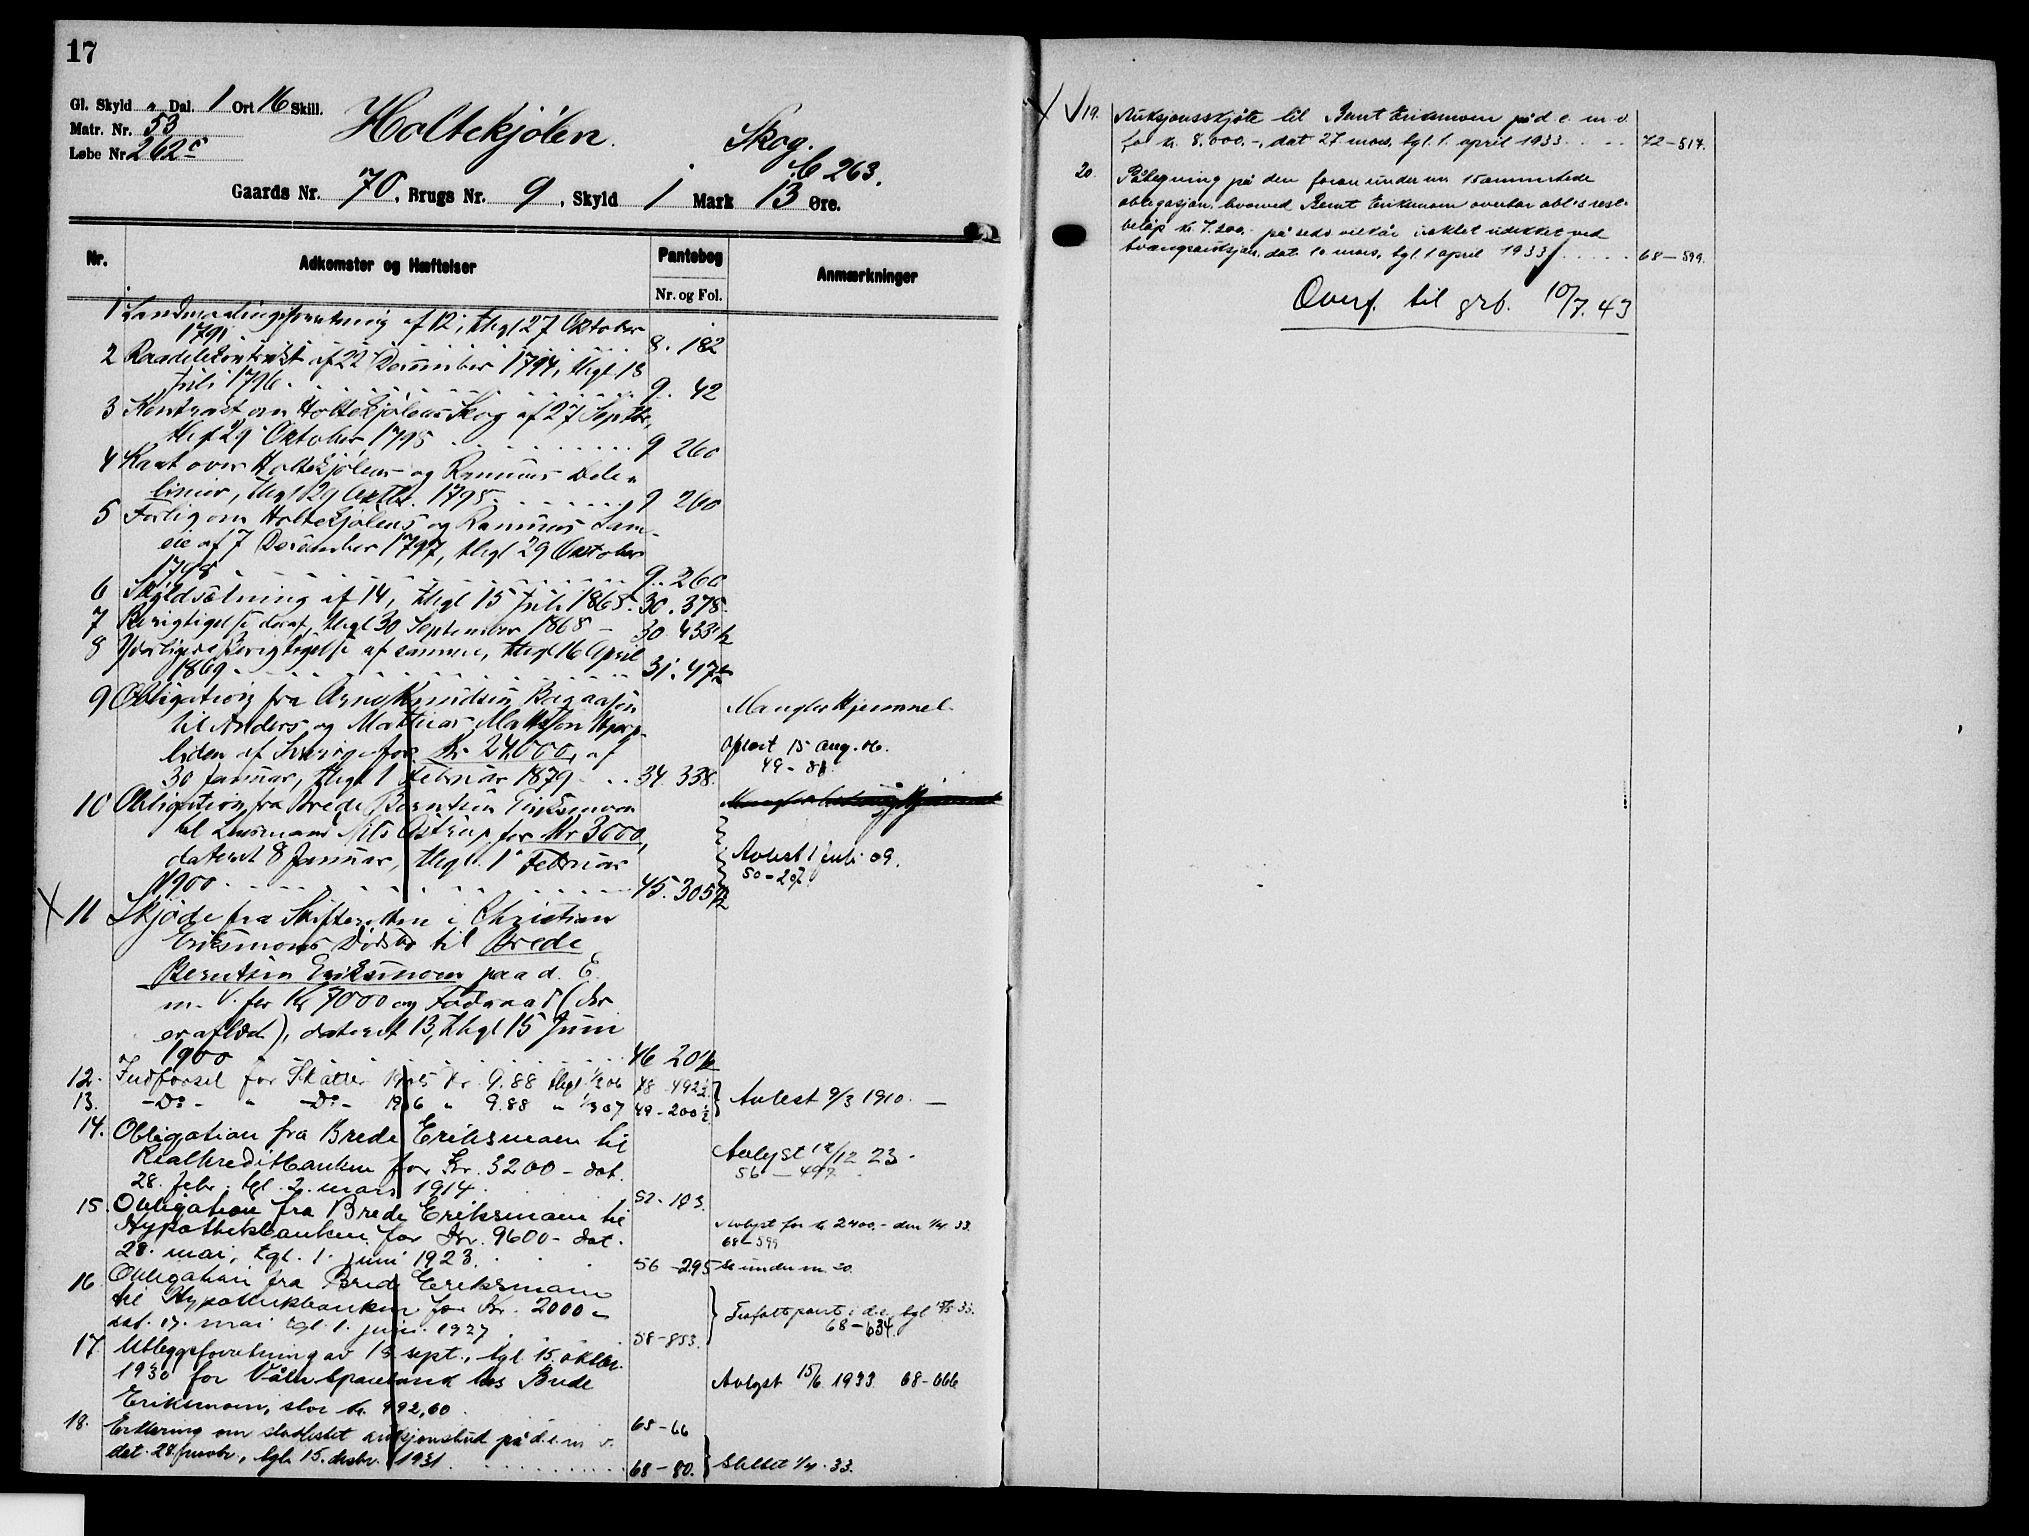 17
Gl. Skyld " Dal. 1 Ort 16 Skill.
Matr. Nr. 53
Løbe Nr. 262c
Holtekjølen. Skog.
b 263.
Gaards Nr. 70, Brugs Nr. 9, Skyld 1 Mark 13 Øre.
Nr. Adkomster og Hæftelser Pantebog Anmærkninger
Nr. og Fol.
1 Landmaalingsforretning af 12, thgl 27 Oktober
1791 8. 182
2 Raadelskontrakt af 22 December 1794, thgl 13
Juli 1796. 9. 42
3 Kontract om Holtekjølens Skog af 27 Septbr,
thgl 29 Oktober 1795 9 260
4 Kart over Holtekjølens og Ramnes Dele-
linier, thgl 29 Oktbr. 1795. 9 260
5 Forlig om Holtekjølens og Ramnes
af 7 December 1797, thgl 29 Oktober
1798 9. 260
6 Skyldsætning af 14, thgl 15 Juli 1868. 30. 378.
7 Berigtigelse deraf, thgl 30 September 1868 30. 433 1/2
8 Yderligere Berigtigelse af samme, thgl 16 April
1869. 31. 47
9 Obligation fra Arne Knudsen Bergaasen Mangler Hjemmel.
til Anders og Mathias Mattsson
af Sverige for Kr 24000, af Aflæst 15 aug. 06.
30 Januar, thgl 1 Februar 1879 34. 338. 49 - 81
10 Obligation fra Brede Berntsen Eriksmoen
til Lensmand Nils Ostrup for Kr 3000,
dateret 8 Januar, thgl. 1 Februar Avlest 1 juli 09.
1900. 45. 305 1/2 50 - 207
11 Skjøde fra Skifteretten i Christian
Eriksmoens Dødsbo til Brede
Berntsen Eriksmoen paa d. E.
m. V. for Kr 7000 og Føderaad (der
er aflæst), dateret 13, thgl 15 Juni
1900 46 201 1/2
12. Indførsel for Skatter 1905 Kr. 9.88 thgl. 1/3 06 48 - 492 1/2
13. - Do - " - Do - 1906 " 9.88 " 1/3 07 49 - 200 1/2 Avlest 9/3 1910. —
14. Obligation fra Brede Eriksmoen til
Realkreditbanken for Kr. 3200 - dat. Avlyst 12/12 23 -
28. febr. tgl. 2. mars 1914. 52. 103. 56 - 497.
15. Obligation fra Brede Eriksmoen til
Hypotekbanken for Kr. 9600 - dat. Avlyst for kr 2400,- den 1/4. 33.
28. mai, tgl. 1. juni 1923. 56 - 295 68 - 599
Se under nr 20.
16 Obligation fra Brede Eriksmoen
til Hypotekbanken for Kr. 2000 - Frafalt pant i d.e. tgl 33.
dat. 17. mai tgl. 1. juni 1927. 58 - 853. 68 - 634.
17. Utleggsforretning av 13 sept., tgl. 15. oktbr.
1930 for Våler Sparebank hos Brede Avlyst 15/6. 1933. 68 - 666
Eriksmoen, stor kr. 992,60 68 - 66
18. Erklæring om stadfestet auksjonsbud på d.e. m. v.
dat. 28. novbr., tgl. 15. desbr. 1931. 68 - 80. Slettet 1/4. 33.
19. Auksjonsskjøte til Bernt Eriksmoen på d. e. m. v.
for kr. 8.000.-, dat 27. mars, tgl. 1. april 1933. 72 - 517.
20. Påtegning på den foran under nr 15 anmerkede
obligasjon, hvorved Bernt Eriksmoen overtar obl's rest-
beløp kr. 7.200.- på seds. vilkår istedet utdekket ved
tvangsauksjon, dat. 10 mars, tgl. 1 april 1933. 68 - 599.
Overf. til grb. 10/7. 43